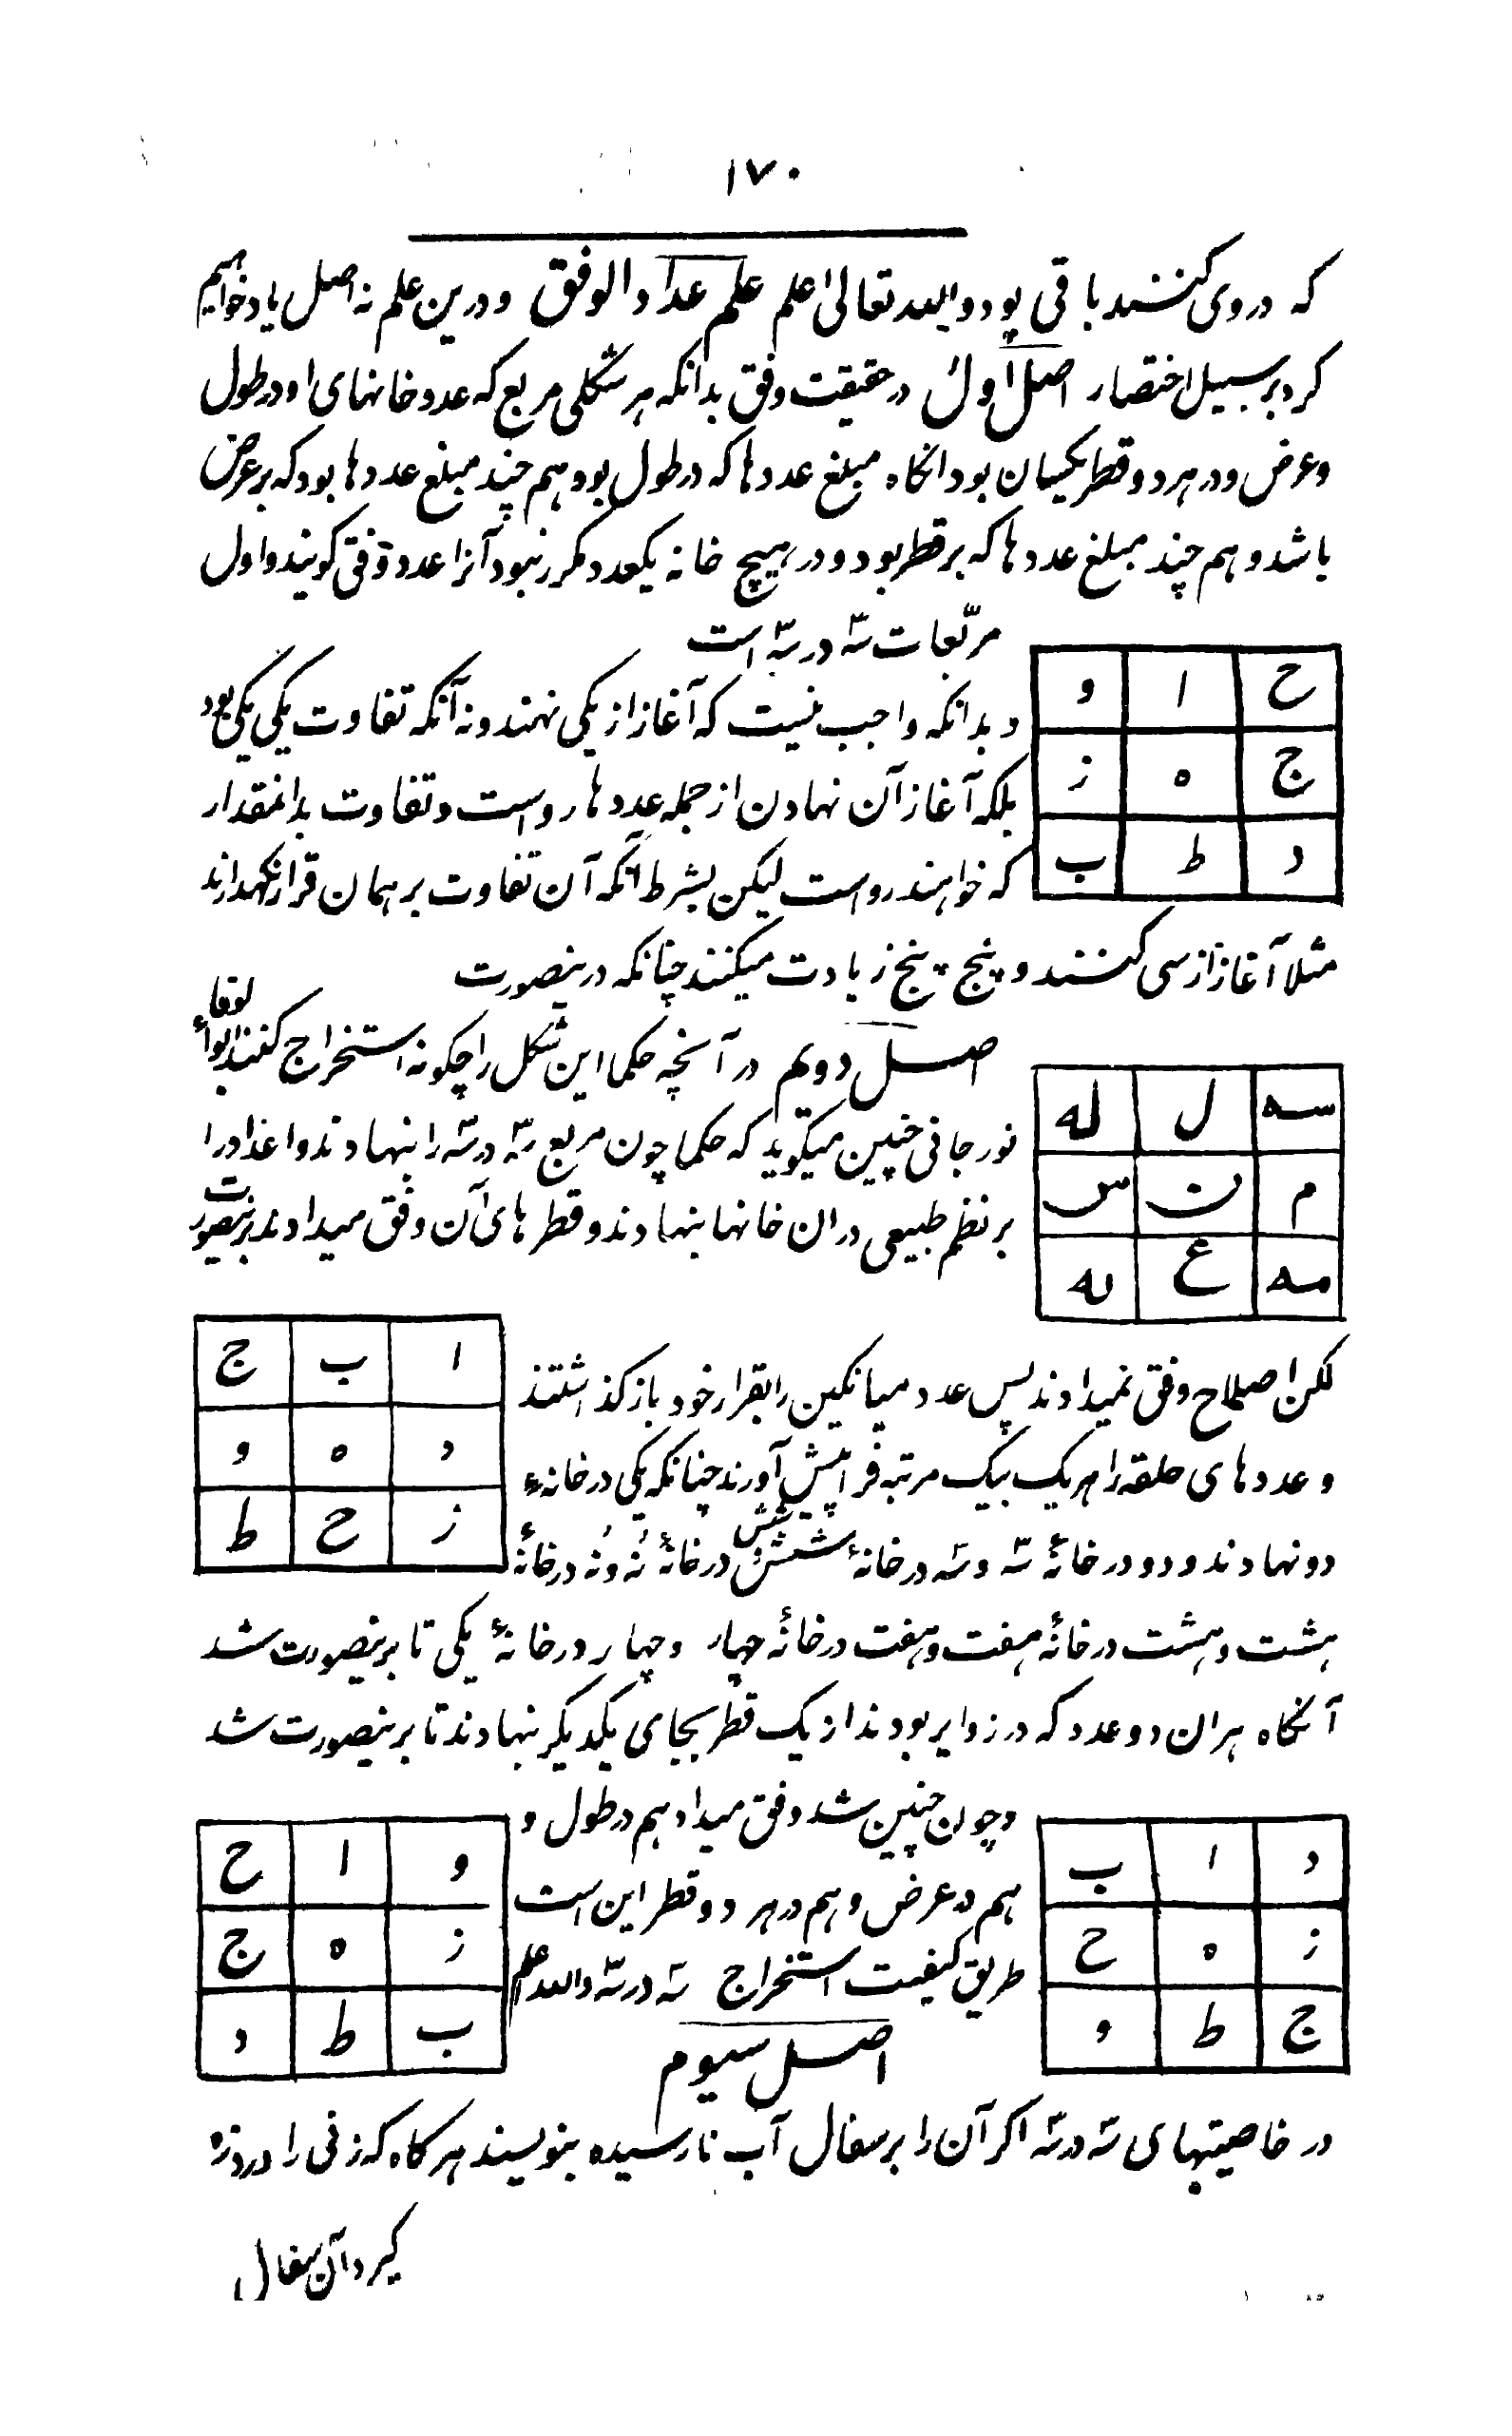 ۱۷۰
که در وی کنند باقی بود والله تعالیٰ اعلم علم عداد الوفق و درین علم نه اصل یاد خواهیم
کرد بر سبیل اختصار اصل اول در حقیقت وفق بدانکه هر شکلی مربع که عدد خانهای او در طول
و عرض و در هر دو قطر یکسان بود انکاه مبلغ عددها که در طول بود هم چند مبلغ عددها بود که بر عرض
باشد و هم چند مبلغ عددها که بر قطر بود و در هیچ خانه یکعدد مکرر نبود آنرا عدد وفق کویند و اول
مربّعات سه در سه است
ح ا و
ج ه ز
د ط ب
و بدانکه واجب نیست که آغاز از یکی نهند و نه آنکه تفاوت یکی یکی بود
بلکه آغاز آن نهادن از جمله عددها رواست و تفاوت بدانمقدار
که خواهند رواست لیکن بشرط آنکه آن تفاوت بر همان قرار نکهدارند
مثلا آغاز از سی کنند و پنج پنج زیادت میکنند چنانکه درینصورت
سه ل له
م ن س
مه ع نه
اصل دویم در آنچه حکما این شکل را چکونه استخراج کنند ابو الوفاء
نورجانی چنین میکوید که حکما چون مربع سه در سه را بنهادند و اعداد را
بر نظم طبیعی در ان خانها بنهادند و قطرهای آن وفق میدادند برینصورت
ا ب ج
د ه و
ز ح ط
لکن اصلاح وفق نمیدادند پس عدد میانکین را بقرار خود باز کذاشتند
و عددهای حلقه را هر یک بیک مرتبه فرا پیش آورند چنانکه یکی در خانهء
دو نهادند و دو در خانهٔ سه و سه در خانهٔ شش شش در خانهٔ نُه و نُه در خانهٔ
هشت و هشت در خانهٔ هفت و هفت در خانهٔ چهار و چهار در خانهٔ یکی تا برینصورت شد
آنکاه هر ان دو عدد که در زوایر بودند از یک قطر بجای یکدیکر بنهادند تا برینصورت شد
د ا ب
ز ه ح
ج ط و
و چون چنین شد وفق میداد هم در طول و
هم در عرض و هم در هر دو قطر این است
طریق کیفیت استخراج سه در سه والله اعلم
و ا ح
ز ه ج
ب ط د
اصل سیوم
در خاصیتهای سه در سه اکر آن را بر سفال آب نارسیده بنویسند هر کاه که زنی را درد زه
کیرد آن سفال